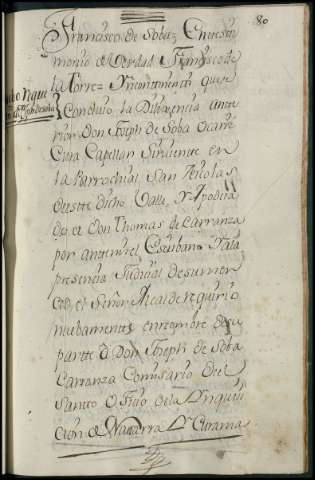 80
Francisco de Soba, En testi
monio de Verdad, Francisco de
la Torre = Yncontinenti que se
Concluio la Dilixencia ante
rior Don Joseph de Soba
Cura Capellan Sirviente en
la Parrochial San Nicolas
de este dicho Valle, Y Apodera
do de Don Thomas de Carranza
por ante mi el Escribano Y a la
presencia Judicial de su mer
ced, el Señor Alcalde requirio
nuebamente en nombre de su
partte à Don Joseph de Soba
Carranza Comisario del
Santto Oficio de la Ynquisi
cion de Navarra